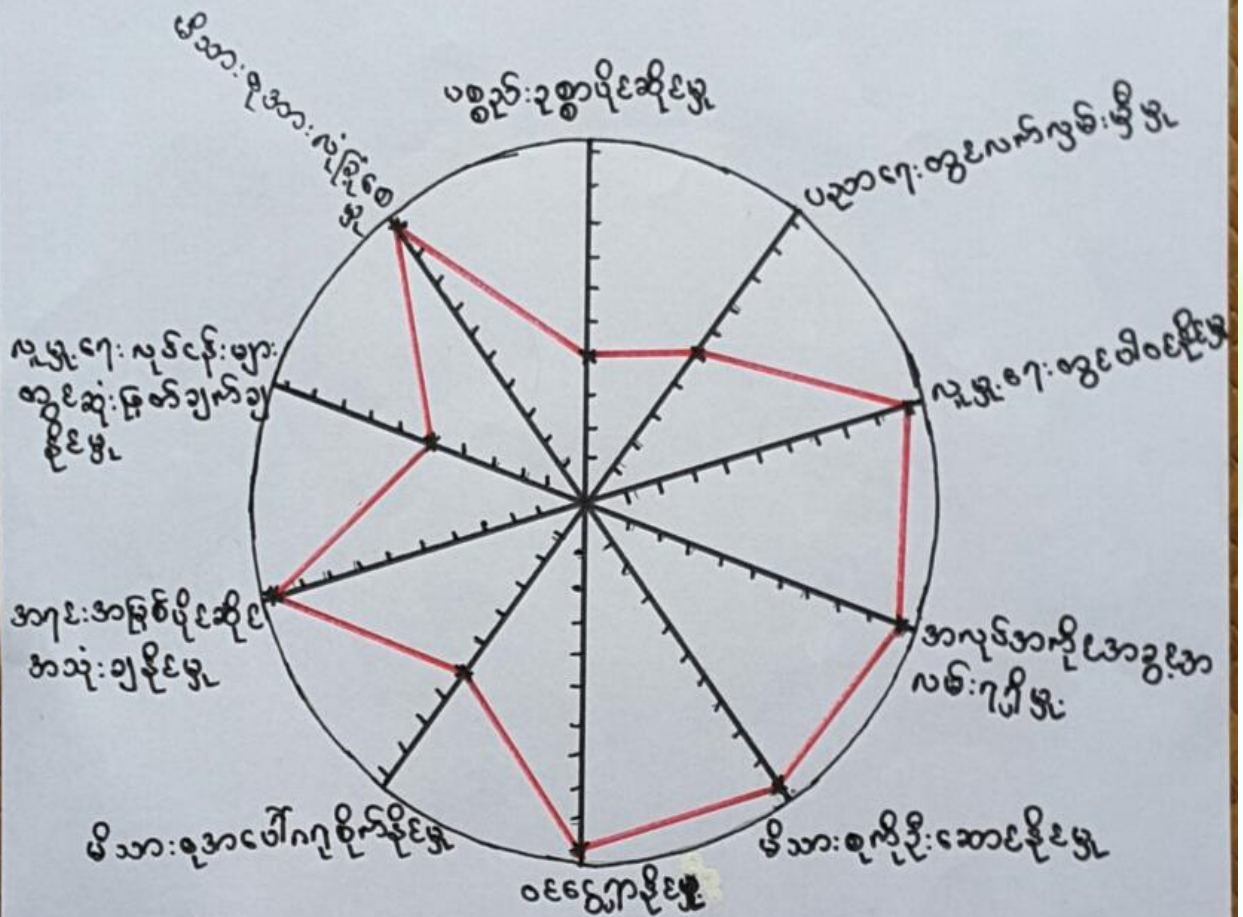 ပစ္စည်းဥစ္စာပိုင်ဆိုင်မှု
ပညာရေးတွင်လက်လှမ်းမှီမှု
လူမှုရေးတွင်ပါဝင်နိုင်မှု
အလုပ်အကိုင်အခွင့်အ
လမ်းရရှိမှု
မိသားစုကိုဦးဆောင်နိုင်မှု
ဝင်ငွေရှာနိုင်မှု
မိသားစုအပေါ်ဂရုစိုက်နိုင်မှု
အရင်းအမြစ်ပိုင်ဆိုင်
အသုံးချနိုင်မှု
လူမှုရေးလုပ်ငန်းများ
တွင်ဆုံးဖြတ်ချက်ချ
နိုင်မှု
မိသားစုအားလုံခြုံစေ
မှု